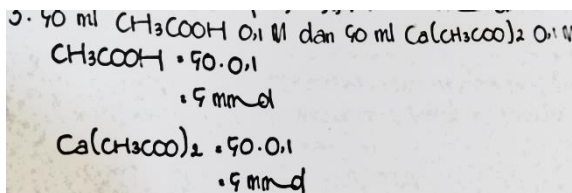 3. 50 ml CH3COOH 0,1 M dan 50 ml Ca(CH3COO)2 0,1 M
CH3COOH = 50.0,1
= 5 mmol
Ca(CH3COO)2 = 50.0,1
= 5 mmol